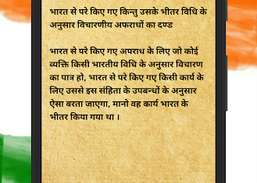 भारत से परे किए गए किन्तु उसके भीतर विधि के
अनुसार विचारणीय अफराधों का दण्ड
भारत से परे किए गए अपराध के लिए जो कोई
व्यक्ति किसी भारतीय विधि के अनुसार विचारण
का पात्र हो, भारत से परे किए गए किसी कार्य के
लिए उससे इस संहिता के उपबन्धों के अनुसार
ऐसा बरता जाएगा, मानो वह कार्य भारत के
भीतर किया गया था ।